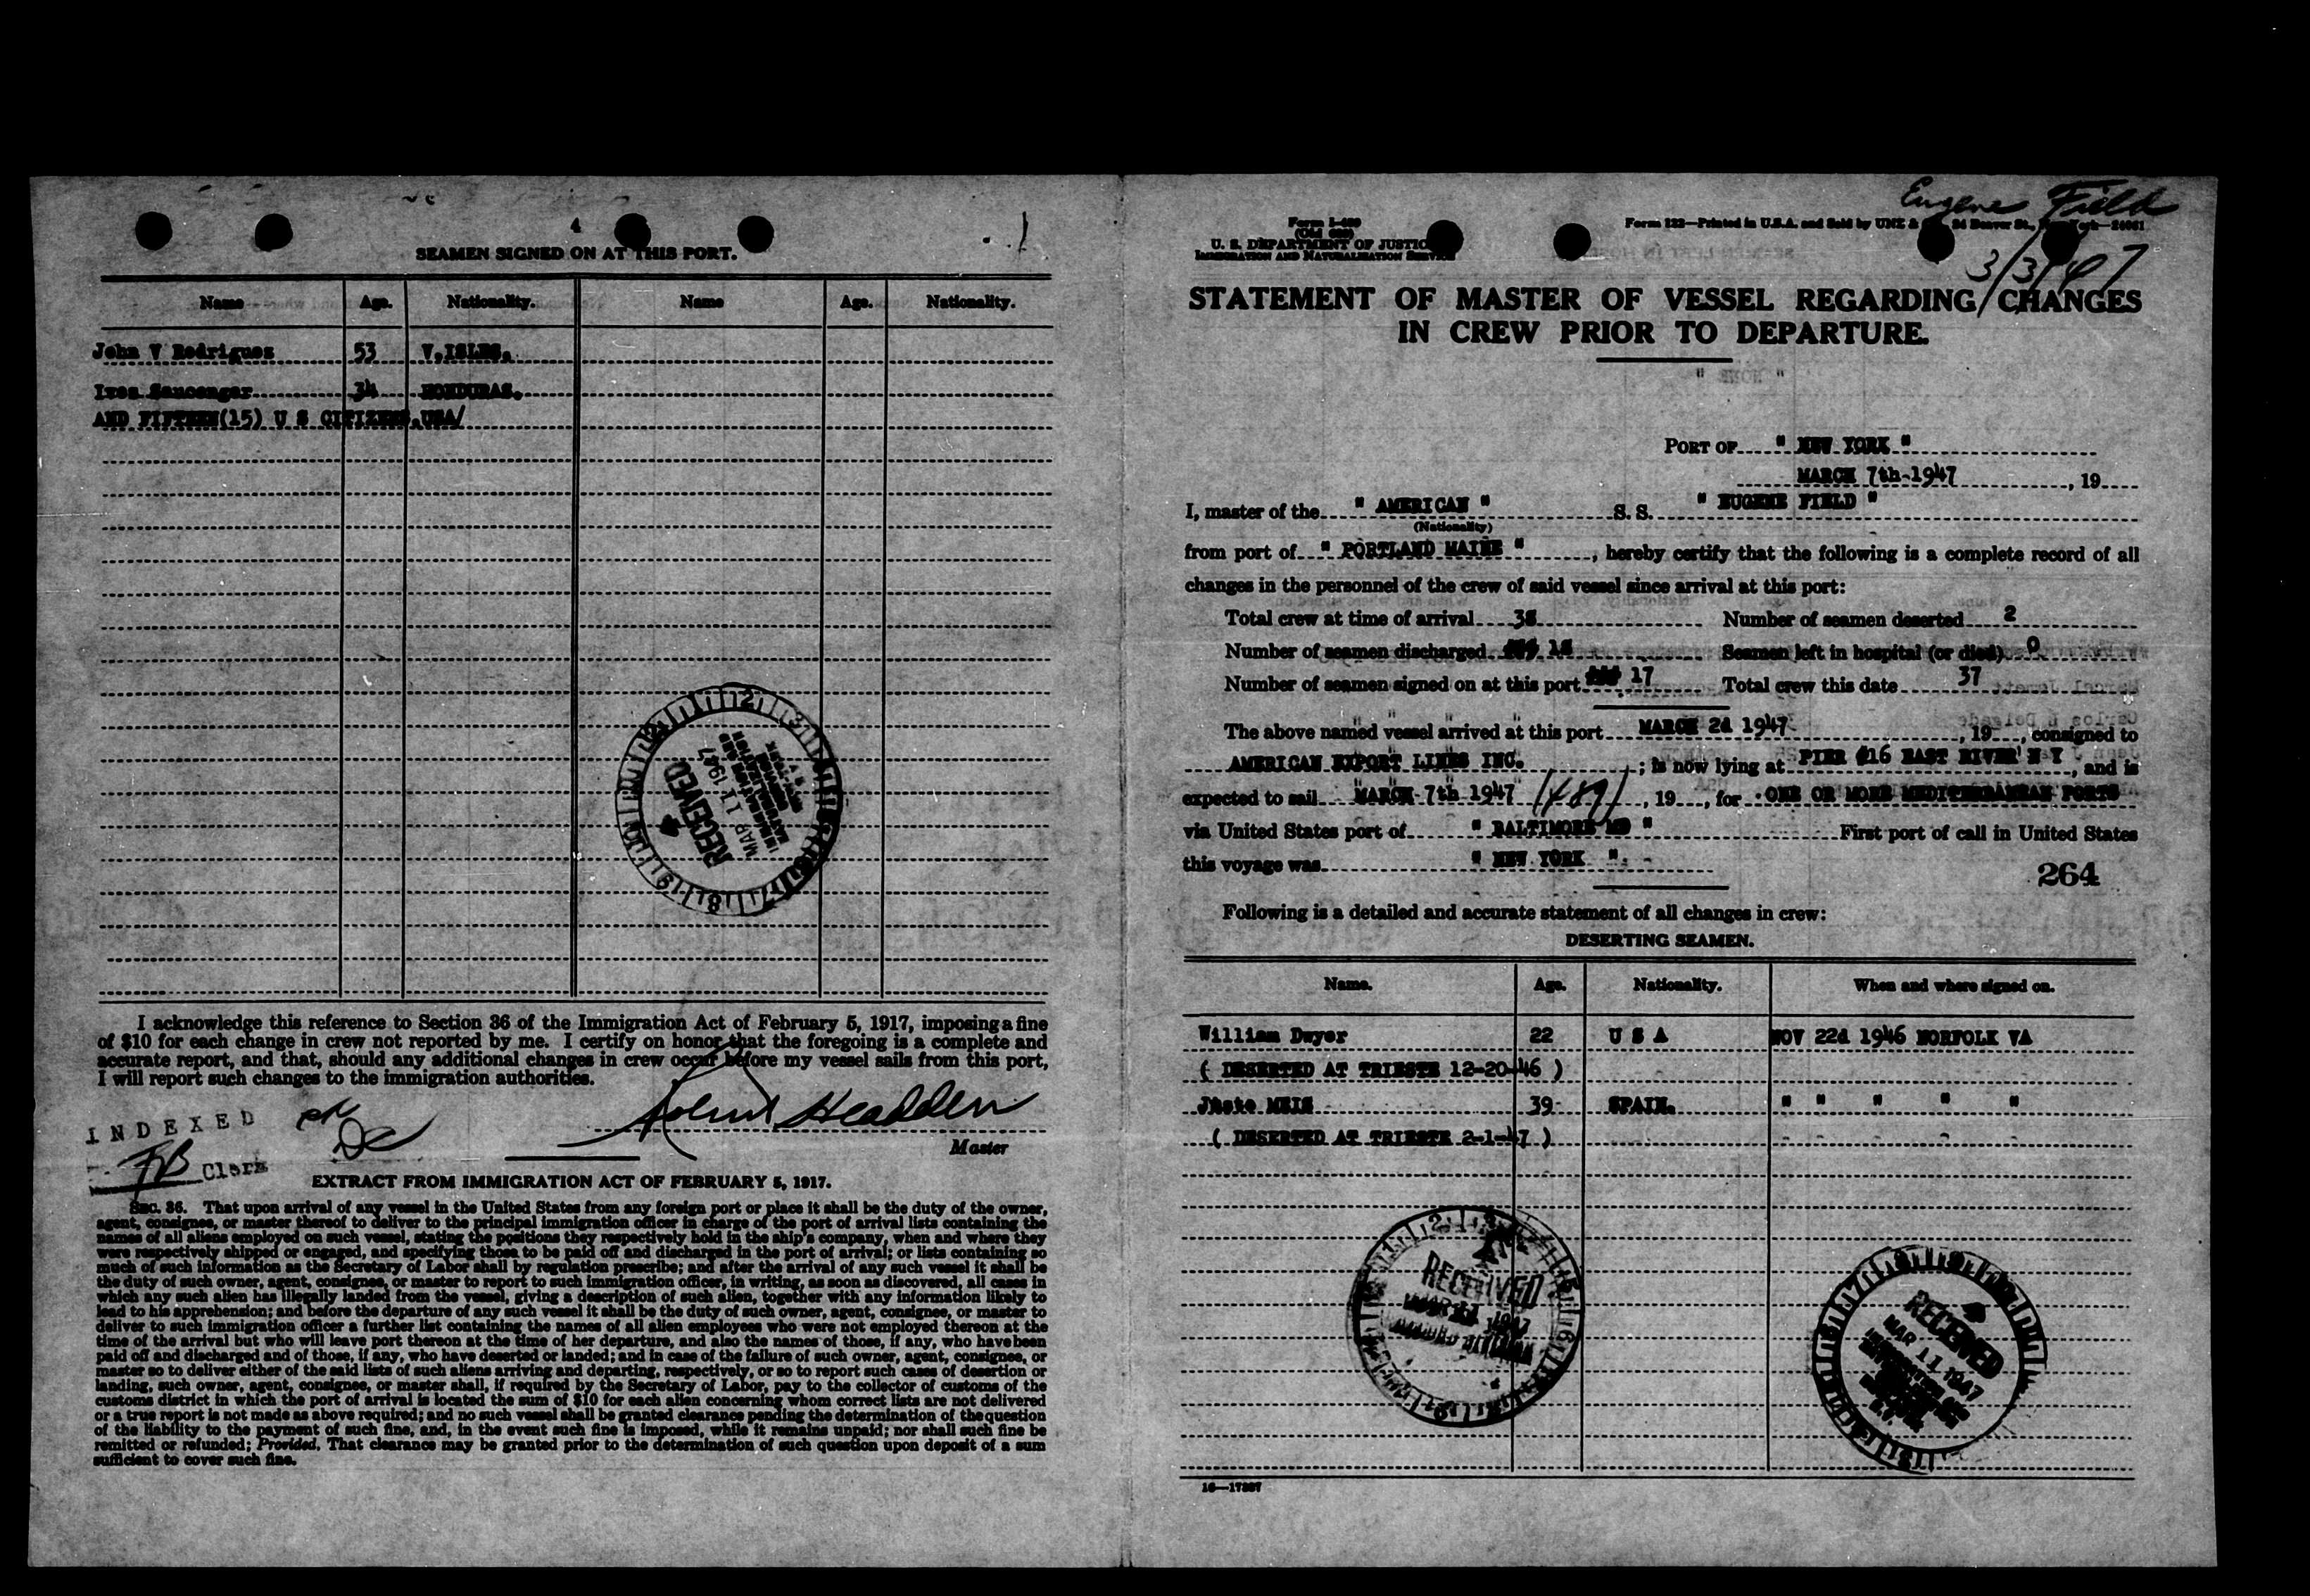 4
SEAMEN SIGNED ON AT THIS PORT.
Name Age. Nationality. Name Age. Nationality.
John V Rodriguez 53 V,ISLES.
34 HONDURAS.
AND FIFTEEN(15) U S CITIZENS,USA/
RECEIVED
MAR 11 1947
I acknowledge this reference to Section 36 of the Immigration Act of February 5, 1917, imposing a fine
of $10 for each change in crew not reported by me. I certify on honor that the foregoing is a complete and
accurate report, and that, should any additional changes in crew occur before my vessel sails from this port,
I will report such changes to the immigration authorities.
Headden
Master
INDEXED
Clerk
EXTRACT FROM IMMIGRATION ACT OF FEBRUARY 5, 1917.
SEC. 36. That upon arrival of any vessel in the United States from any foreign port or place it shall be the duty of the owner,
agent, consignee, or master thereof to deliver to the principal immigration officer in charge of the port of arrival lists containing the
names of all aliens employed on such vessel, stating the positions they respectively hold in the ship's company, when and where they
were respectively shipped or engaged, and specifying those to be paid off and discharged in the port of arrival; or lists containing so
much of such information as the Secretary of Labor shall by regulation prescribe; and after the arrival of any such vessel it shall be
the duty of such owner, agent, consignee, or master to report to such immigration officer, in writing, as soon as discovered, all cases in
which any such alien has illegally landed from the vessel, giving a description of such alien, together with any information likely to
lead to his apprehension; and before the departure of any such vessel it shall be the duty of such owner, agent, consignee, or master to
deliver to such immigration officer a further list containing the names of all alien employees who were not employed thereon at the
time of the arrival but who will leave port thereon at the time of her departure, and also the names of those, if any, who have been
paid off and discharged and of those, if any, who have deserted or landed; and in case of the failure of such owner, agent, consignee, or
master so to deliver either of the said lists of such aliens arriving and departing, respectively, or so to report such cases of desertion or
landing, such owner, agent, consignee, or master shall, if required by the Secretary of Labor, pay to the collector of customs of the
customs district in which the port of arrival is located the sum of $10 for each alien concerning whom correct lists are not delivered
or a true report is not made as above required; and no such vessel shall be granted clearance pending the determination of the question
of the liability to the payment of such fine, and, in the event such fine is imposed, while it remains unpaid; nor shall such fine be
remitted or refunded; Provided, That clearance may be granted prior to the determination of such question upon deposit of a sum
sufficient to cover such fine.
Eugene Field
3/3/47
Form I-489
U. S. DEPARTMENT OF JUSTICE
IMMIGRATION AND NATURALIZATION SERVICE
Form 122—Printed in U.S.A. and Sold by UNZ & Beaver St.,
STATEMENT OF MASTER OF VESSEL REGARDING CHANGES
IN CREW PRIOR TO DEPARTURE.
PORT OF " NEW YORK "
MARCH 7th-1947 , 19
I, master of the " AMERICAN " S. S. " EUGENE FIELD "
(Nationality)
from port of " PORTLAND MAINE " , hereby certify that the following is a complete record of all
changes in the personnel of the crew of said vessel since arrival at this port:
Total crew at time of arrival 38 Number of seamen deserted 2
Number of seamen discharged 18 Seamen left in hospital (or died) 0
Number of seamen signed on at this port 17 Total crew this date 37
The above named vessel arrived at this port MARCH 2d 1947 , 19 , consigned to
AMERICAN EXPORT LINES INC. ; is now lying at PIER #16 EAST RIVER N Y , and is
expected to sail MARCH 7th 1947 , 19 , for ONE OR MORE MEDITERRANEAN PORTS
via United States port of " BALTIMORE MD " First port of call in United States
this voyage was " NEW YORK "
264
Following is a detailed and accurate statement of all changes in crew:
DESERTING SEAMEN.
Name. Age. Nationality. When and where signed on.
William Dwyer 22 U S A NOV 22d 1946 NORFOLK VA
( DESERTED AT TRIESTE 12-20-46 )
Juste MEIS 39 SPAIN. " " " " "
( DESERTED AT TRIESTE 2-1-47 )
RECEIVED
1947
RECEIVED
MAR 11 1947
16—17387